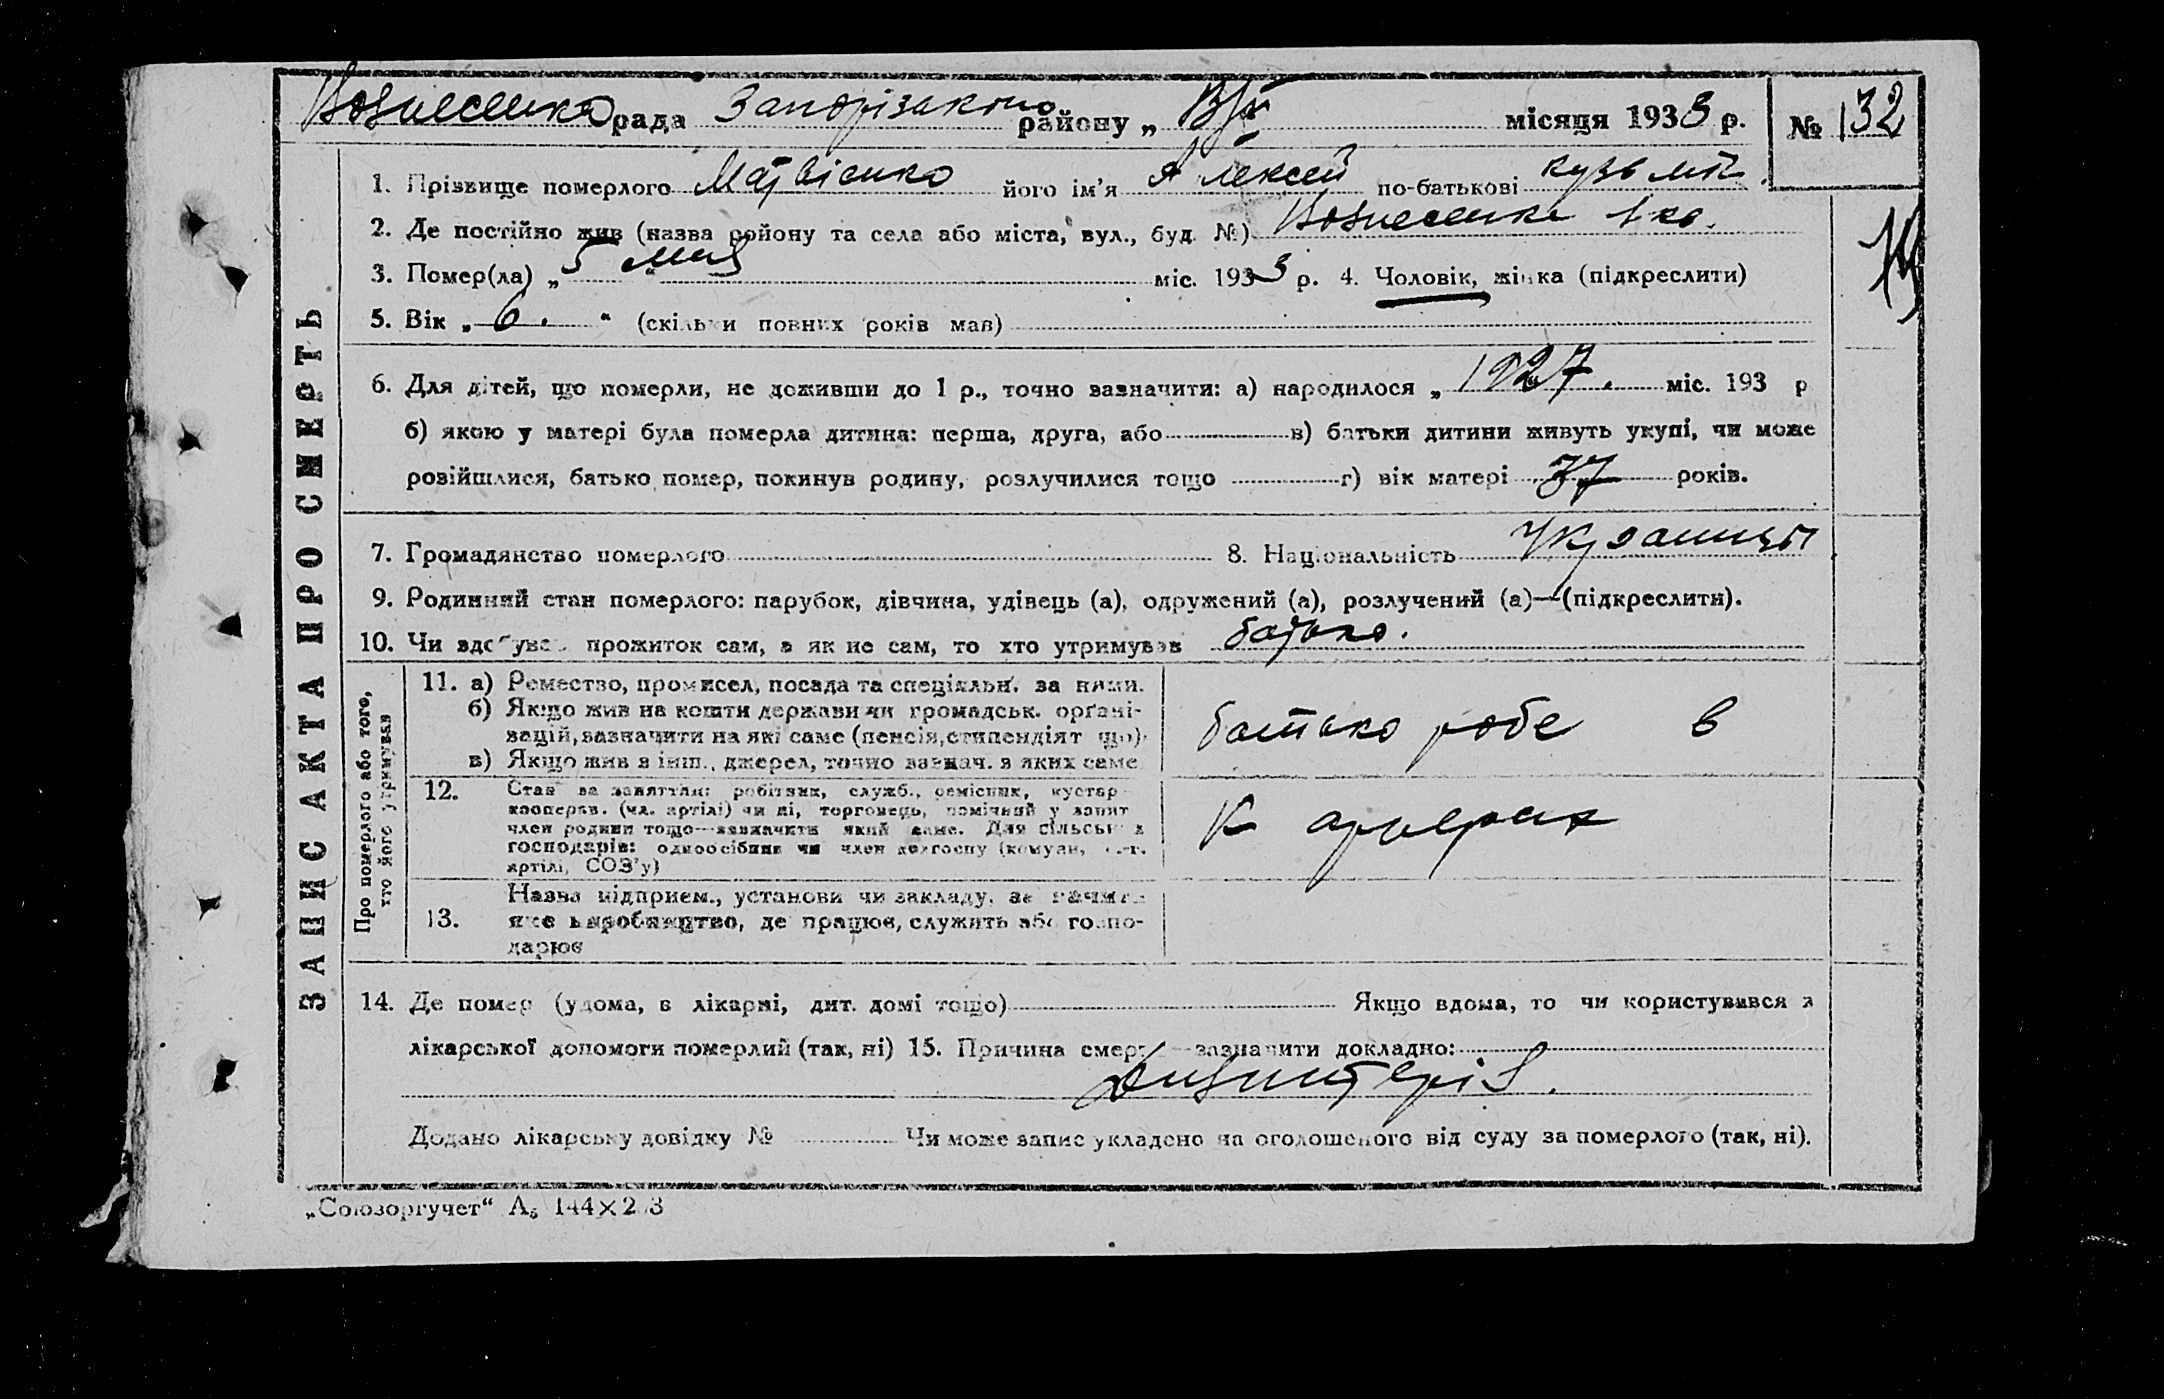 Вознесенко рада Запорізького району „ В/ч місяця 1933 р. № 132
1. Прізвище померлого Матвієнко його ім'я Алексей по-батькові Кузьмич.
2. Де постійно жив (назва району та села або міста, вул., буд. №) Вознесенка
3. Помер(ла) „ 5 “ мая міс. 1933 р. 4. Чоловік, жінка (підкреслити)
5. Вік „ 6. “ (скільки повних років мав)
6. Для дітей, що померли, не доживши до 1 р., точно зазначити: а) народилося „ 1927. міс. 193 р
б) якою у матері була померла дитина: перша, друга, або в) батьки дитини живуть укупі, чи може
розійшлися, батько помер, покинув родину, розлучилися тощо г) вік матері 37 років.
7. Громадянство померлого 8. Національність
9. Родинний стан померлого: парубок, дівчина, удівець (а), одружений (а), розлучений (а)—(підкреслити).
10. Чи здобував прожиток сам, а як не сам, то хто утримував батько.
ЗАПИС АКТА ПРО СМЕРТЬ
Про померлого або того, хто його утримував
11. а) Ремество, промисел, посада та спеціяльн. за ними.
б) Якщо жив на кошти держави чи громадськ. орґані-
зацій, зазначити на які саме (пенсія, стипендіят що)
в) Якщо жив з інш., джерел, точно зазнач. з яких саме
батько робе в
12. Став за заняттям: робітник, служб., ремісник, кустар
кооперав. (чл. артілі) чи ні, торговець, помічний у занят
член родини тощо—зазначити який саме. Для сільськ х
господарів: одноосібник чи член колгоспу (комуни, с.-г.
артілі, СОЗ'у)
К
13. Назва підприєм., установи чи закладу, за
яке виробництво, де працює, служить або госпо-
дарює
14. Де помер (удома, в лікарні, дит. домі тощо) Якщо вдома, то чи користувався з
лікарської допомоги померлий (так, ні) 15. Причина смерт —зазначити докладно:
Дизинтерія.
Додано лікарську довідку № Чи може запис укладено на оголошеного від суду за померлого (так, ні).
„Союзоргучет“ А₅ 144×2 3